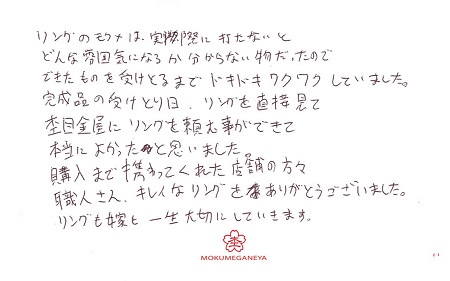 リングのモクメは、実際に打たないと
どんな雰囲気になるか分からない物だったので
できたものを受けとるまでドキドキワクワクしていました。
完成品の受けとり日、リングを直接見て
杢目金屋にリングを頼む事ができて
本当によかったと思いました。
購入まで携わってくれた店舗の方々
職人さん、キレイなリングをありがとうございました。
リングも嫁も一生大切にしていきます。
MOKUMEGANEYA